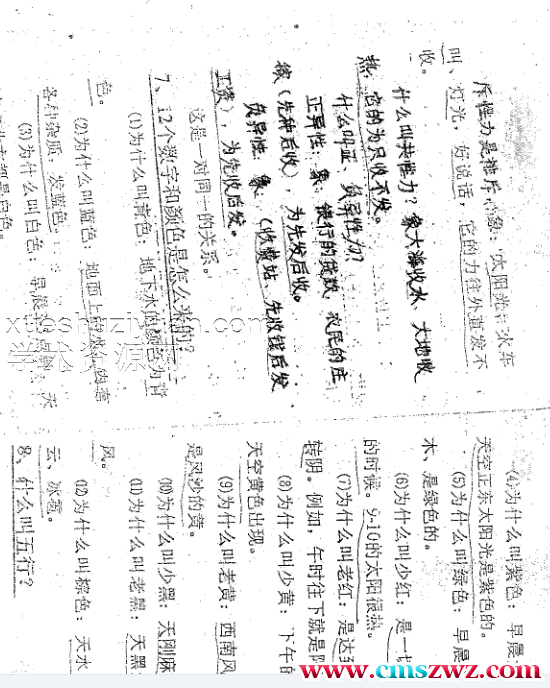 斥性力是推斥，象：太阳光、火车
叫、灯光，好说话，它的力往外直发不
收。
什么叫共性力？象大海收水、大地收
热，它的为只收不发。
什么叫正、负异性力？
正异性：象，银行的贷款、农民的庄
稼（先种后收），为先发后收。
负异性，象，（收费站，先收钱后发
工资）为先收后发。
这是一对同一的关系。
7、12个数字和颜色是怎么来的？
(1)为什么叫青色：地下水的颜色为青
色。
(2)为什么叫蓝色：地面上的
各种杂质，发蓝色。
(3)为什么叫白色：早晨
(4)为什么叫紫色：早晨
天空正东太阳光是紫色的。
(5)为什么叫绿色：早晨
木，是绿色的。
(6)为什么叫少红：是一
的时候。9-10的太阳很热。
(7)为什么叫老红：是达到
转阴。例如，午时往下就是阴
(8)为什么叫少黄：下午
天空黄色出现。
(9)为什么叫老黄：西南风
是风沙的黄。
(10)为什么叫少黑：天刚麻
(11)为什么叫老黑：天黑
风。
(12)为什么叫棕色：天水
云、冰雹。
8、什么叫五行？
www.cmszwz.com